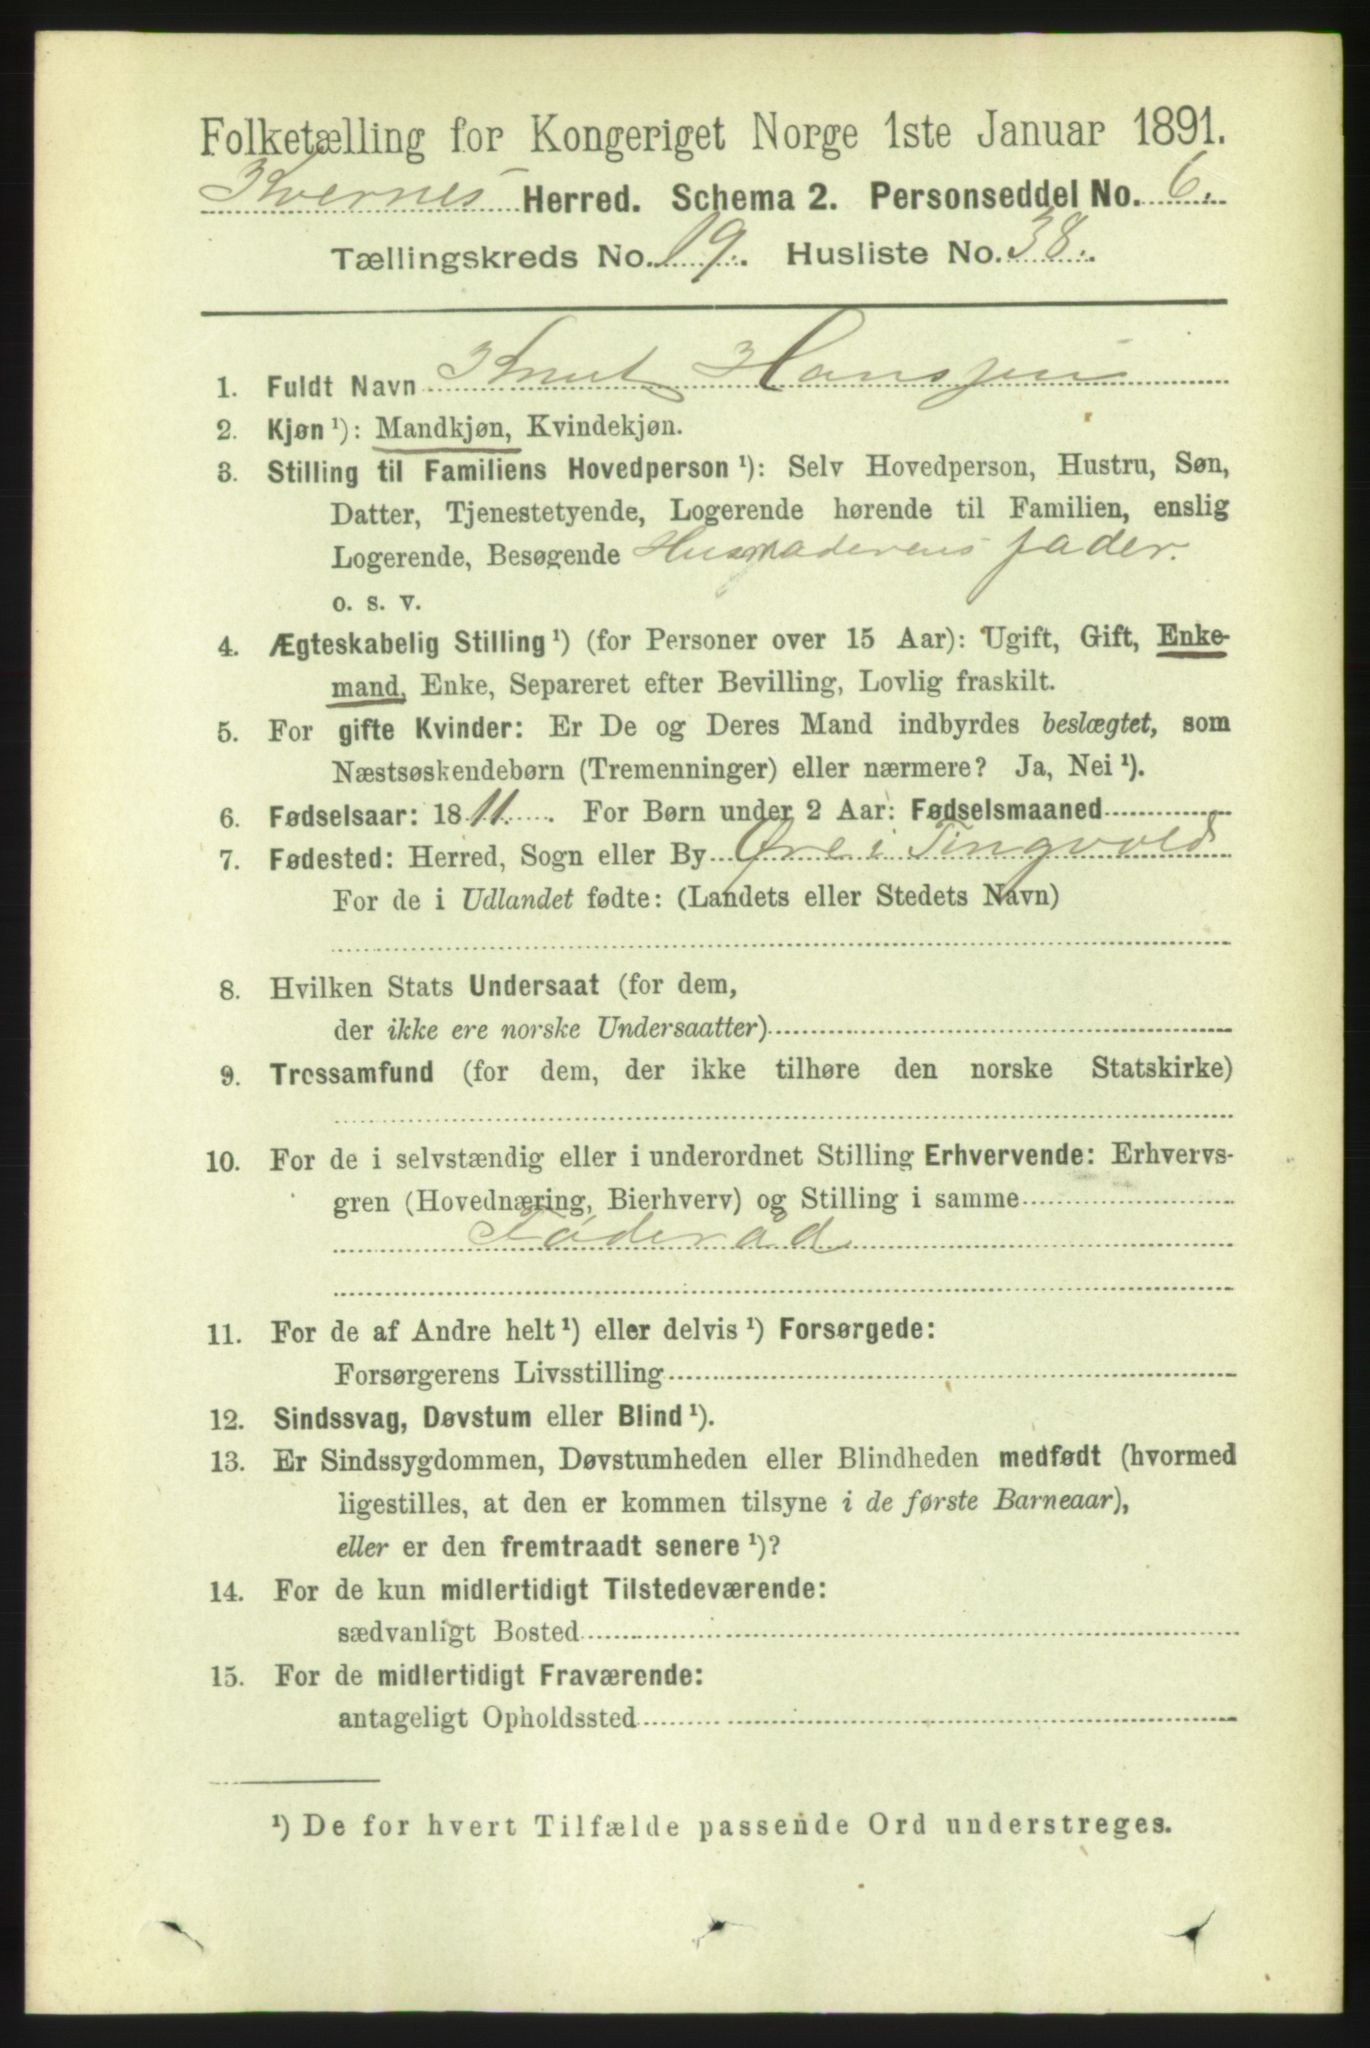 Folketælling for Kongeriget Norge 1ste Januar 1891.
Kvernes Herred. Schema 2. Personseddel No. 6.
Tællingskreds No. 19. Husliste No. 38.
1. Fuldt Navn Knut Hansen
2. Kjøn ¹): Mandkjøn, Kvindekjøn.
3. Stilling til Familiens Hovedperson ¹): Selv Hovedperson, Hustru, Søn,
Datter, Tjenestetyende, Logerende hørende til Familien, enslig
Logerende, Besøgende Husmoderens fader.
o. s. v.
4. Ægteskabelig Stilling ¹) (for Personer over 15 Aar): Ugift, Gift, Enke-
mand, Enke, Separeret efter Bevilling, Lovlig fraskilt.
5. For gifte Kvinder: Er De og Deres Mand indbyrdes beslægtet, som
Næstsøskendebørn (Tremenninger) eller nærmere? Ja, Nei ¹).
6. Fødselsaar: 1811. For Børn under 2 Aar: Fødselsmaaned
7. Fødested: Herred, Sogn eller By Øre i Tingvold
For de i Udlandet fødte: (Landets eller Stedets Navn)
8. Hvilken Stats Undersaat (for dem,
der ikke ere norske Undersaatter)
9. Trossamfund (for dem, der ikke tilhøre den norske Statskirke)
10. For de i selvstændig eller i underordnet Stilling Erhvervende: Erhvervs-
gren (Hovednæring, Bierhverv) og Stilling i samme
Føderåd
11. For de af Andre helt ¹) eller delvis ¹) Forsørgede:
Forsørgerens Livsstilling
12. Sindssvag, Døvstum eller Blind ¹).
13. Er Sindssygdommen, Døvstumheden eller Blindheden medfødt (hvormed
ligestilles, at den er kommen tilsyne i de første Barneaar),
eller er den fremtraadt senere ¹)?
14. For de kun midlertidigt Tilstedeværende:
sædvanligt Bosted
15. For de midlertidigt Fraværende:
antageligt Opholdssted
¹) De for hvert Tilfælde passende Ord understreges.